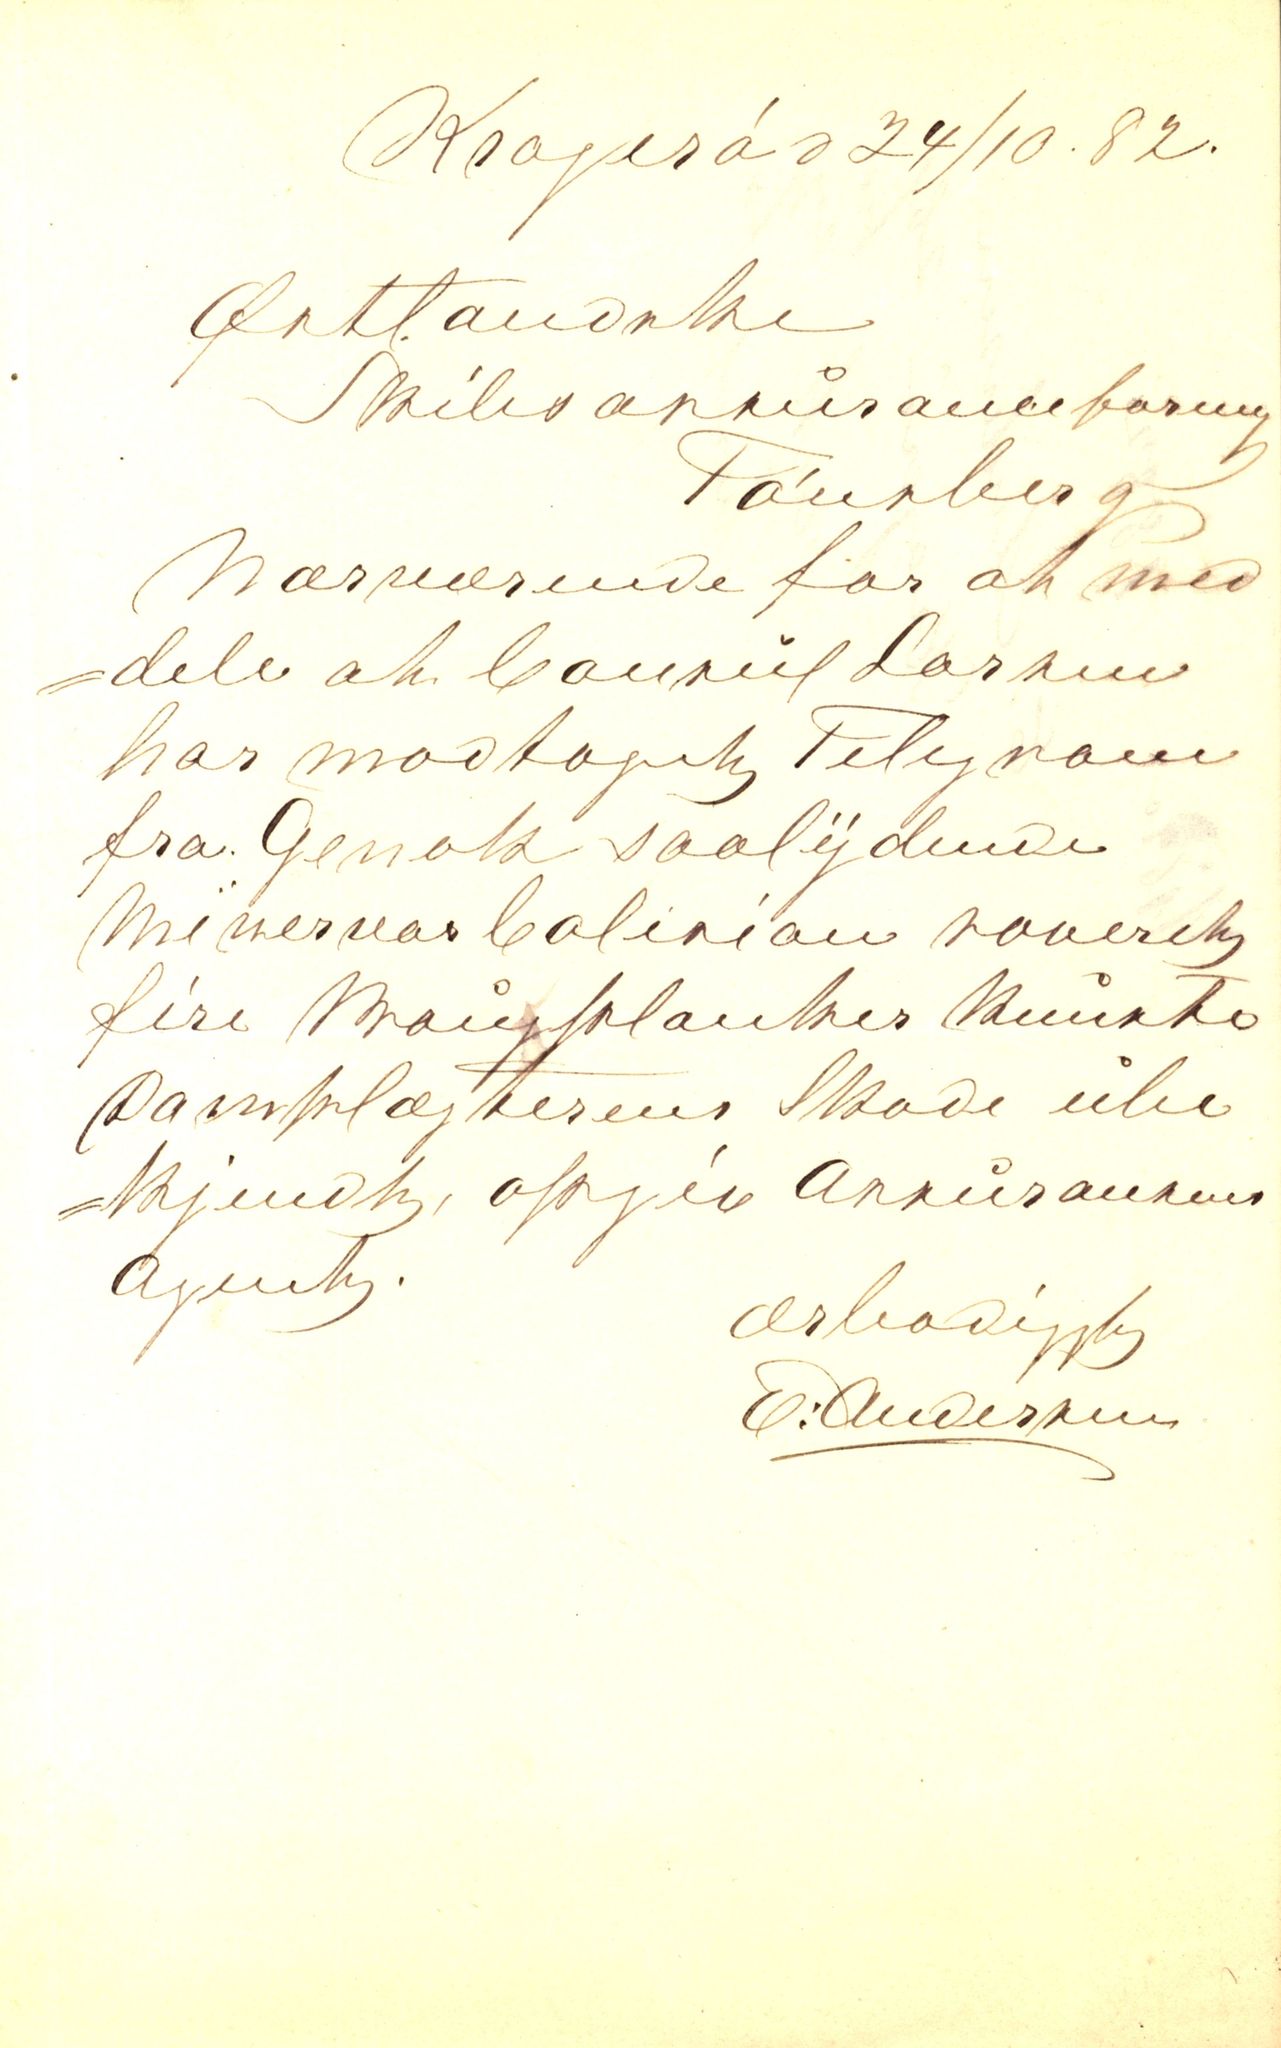 Kragerø d 24/10.82.
Østlandske
Skibsassuranceforeng
Tønsberg
Nærværende for at med
=dele at Consul Larsen
har modtaget Telegram
fra Genok saalydende
Minervas Colision raaeret
fire Bougplanker knuste
Dampfægterens Skade ube
=kjendt, opgiv Assuransens
Agent.
ærbødigst
E: Andersen